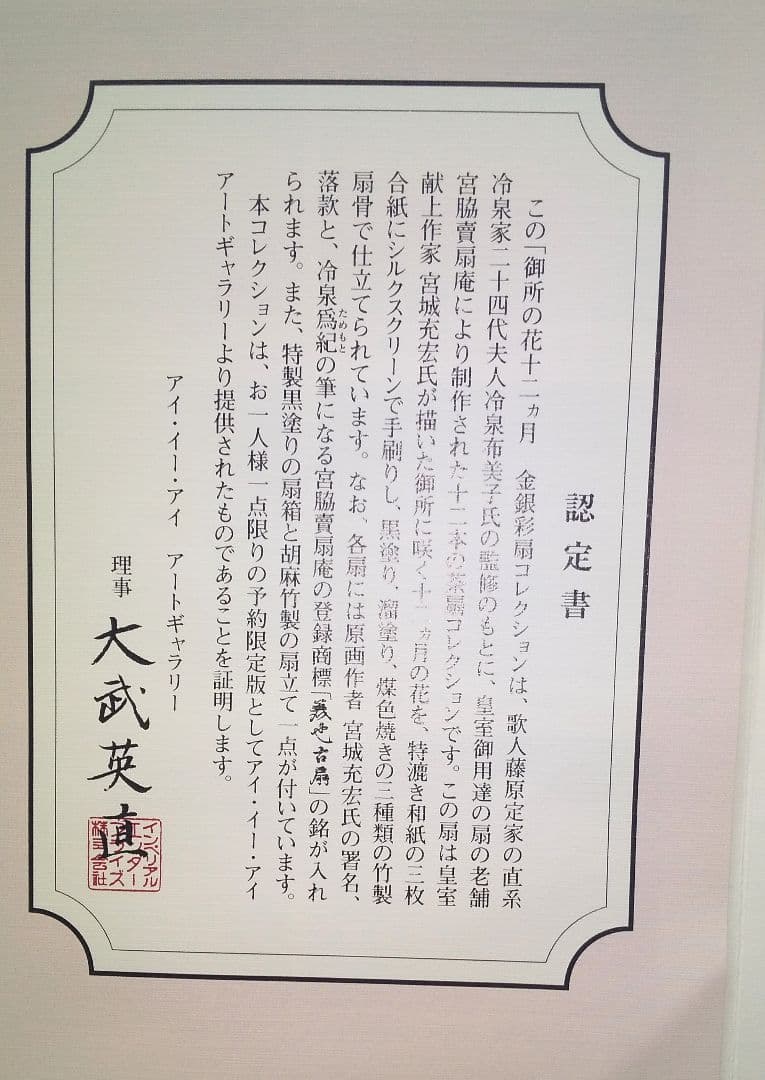 認定書
この「御所の花十二ヵ月 金銀彩扇コレクションは、歌人藤原定家の直系
冷泉家二十四代夫人冷泉布美子氏の監修のもとに、皇室御用達の扇の老舗
宮脇賣扇庵により制作された十二本の茶扇コレクションです。この扇は皇室
献上作家 宮城充宏氏が描いた御所に咲く十二ヵ月の花を、特漉き和紙の三枚
合紙にシルクスクリーンで手刷りし、黒塗り、溜塗り、煤色焼きの三種類の竹製
扇骨で仕立てられています。なお、各扇には原画作者 宮城充宏氏の署名、
落款と、冷泉爲紀の筆になる宮脇賣扇庵の登録商標「美也古扇」の銘が入れ
ためもと
られます。また、特製黒塗りの扇箱と胡麻竹製の扇立て一点が付いています。
本コレクションは、お一人様一点限りの予約限定版としてアイ・イー・アイ
アートギャラリーより提供されたものであることを証明します。
アイ・イー・アイ アートギャラリー
理事 大武英直
インペリアル
エンター
プライズ
株式会社